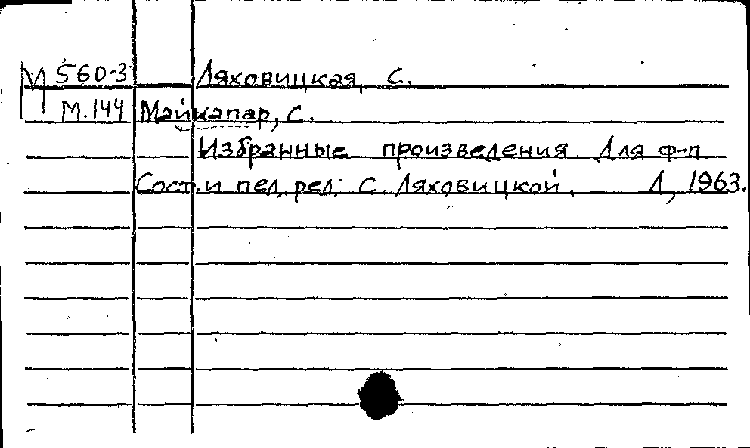 М 560-3 Ляховицкая, С.
М.144 Майкапар, С.
Избранные произведения для ф-п
Сост. и пед. ред. С. Ляховицкой. Л, 1963.